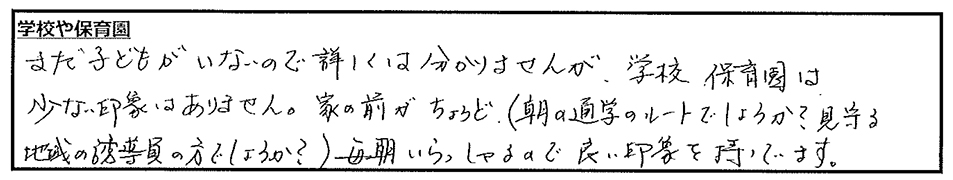 学校や保育園
まだ子どもがいないので詳しくは分かりませんが、学校、保育園は
少ない印象はありません。家の前がちょうど、(朝の通学のルートでしょうか?見守る
地域の誘導員の方でしょうか?)毎朝いらっしゃるので良い印象を持ってます。